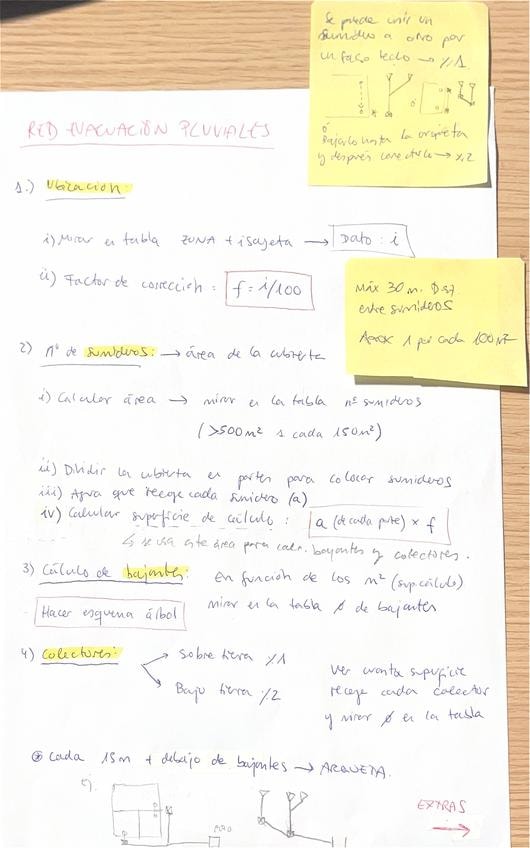 Se puede unir un
sumidero a otro por
un falso techo → %1
ó
Bajarlo hasta la arqueta
y después conectarlo → %2
RED EVACUACIÓN PLUVIALES
1.) Ubicacion:
i) Mirar en tabla ZONA + isoyeta → Dato: i
ii) Factor de corrección = f = i/100
Máx 30 m.
entre sumideros
Aprox 1 por cada 100 m²
2) nº de sumideros: → área de la cubierta
i) Calcular área → mirar en la tabla nº sumideros
(>500m² 1 cada 150m²)
ii) Dividir la cubierta en partes para colocar sumideros
iii) Agua que recoge cada sumidero (a)
iv) Calcular superficie de cálculo: a (de cada parte) × f
↳ se usa este área para calc. bajantes y colectores.
3) Cálculo de bajantes: En función de los m² (sup. cálculo)
mirar en la tabla ø de bajantes
Hacer esquema árbol
4) Colectores:
Sobre tierra %1
Bajo tierra %2
Ver cuanta superficie
recoge cada colector
y mirar ø en la tabla
⊛ Cada 15m + debajo de bajantes → ARQUETA.
Ej.
EXTRAS
→